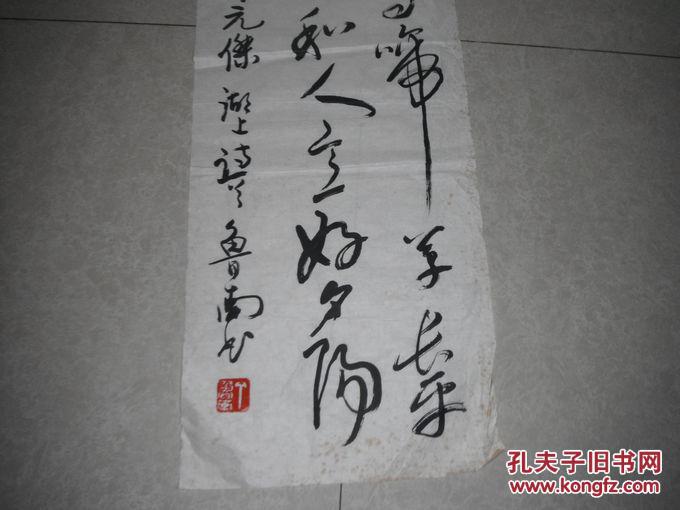 啼草長平
和人意好夕陽
元傑 湖上詩 魯南书
孔夫子旧书网
www.kongfz.com